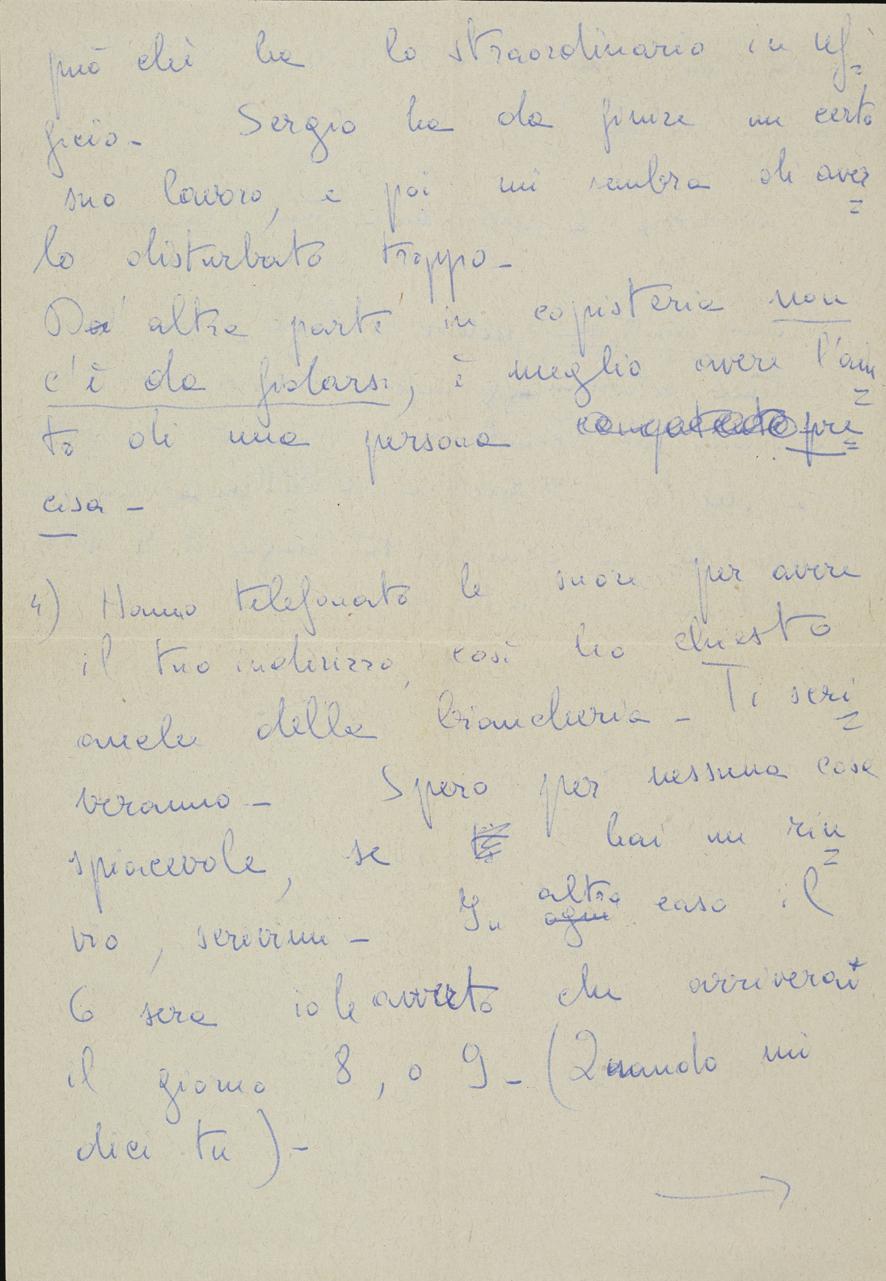 può chè ha lo straordinario in uf=
ficio - Sergio ha da finire un certo
suo lavoro, e poi mi sembra di aver=
lo disturbato troppo -
Da' altra parte in copisteria non
c'è da fidarsi, è meglio avere l'aiu=
to di una persona pre=
cisa -
4) Hanno telefonato le suore per avere
il tuo indirizzo, così ho chiesto
anche della biancheria - Ti scri=
veranno - Spero per nessuna cosa
spiacevole, se hai un rin=
vio, scrivimi - In altro ogni caso il
6 sera io le avverto che arriverai
il giorno 8, o 9 - (Quando mi
dici tu) -